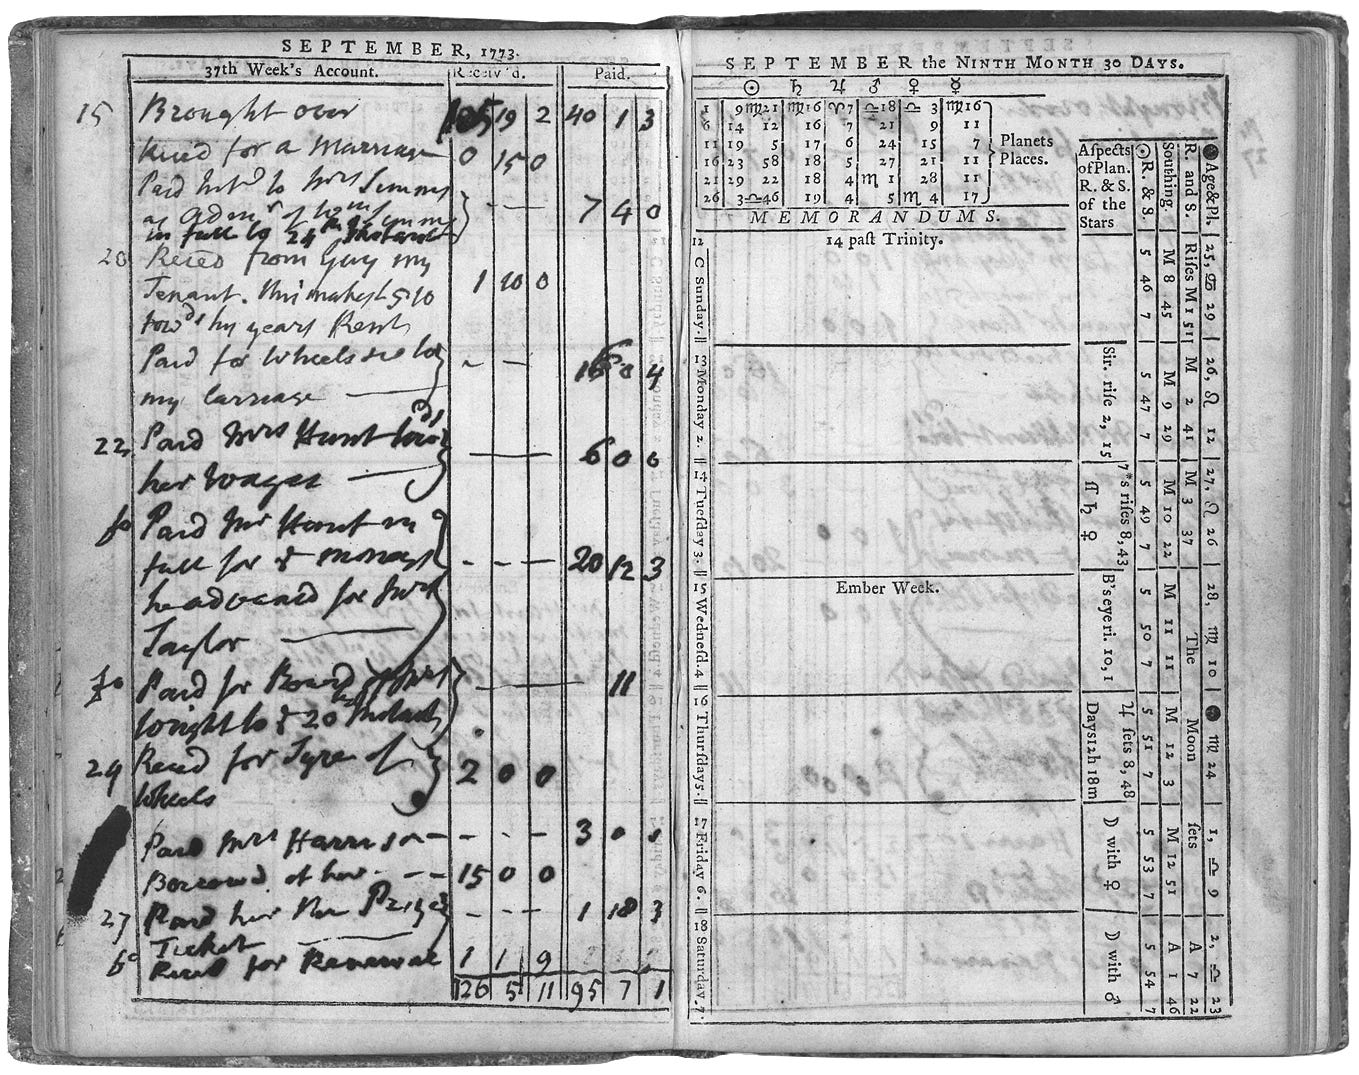 SEPTEMBER, 1773.
37th Week's Account. Receiv'd. Paid.
15 Brought over 105 19 2 40 1 3
Reced for a Marriage 0 15 0
Paid Intd to Mrs Simms
as Admr of 7 4 0
in full to 24th Instant
20 Reced from Guy my
Tenant. this makes £5:10 1 10 0
towds his years Rent
Paid for Wheels
my Carriage 16 0 4
22 Paid Mrs Hunt towds
her Wages 6 0 0
Do Paid Mr Hunt in
full for ye money 20 12 3
he advanced for Mrs
Taylor
Do Paid for Board
to ye 20th Instant 11
29 Reced for Tyre of 2 0 0
Wheels
Paid Mrs Harrison 3 0 0
Borrowed of her 15 0 0
27 Paid her the Prize 1 18 3
Ticket
Do Reced for Renewal 1 1 9
126 5 11 95 7 1
SEPTEMBER the NINTH MONTH 30 DAYS.
☉ ♄ ♃ ♂ ♀ ☿
1 9♍21 ♍16 ♈7 ♎18 ♎ 3 ♍16
6 14 12 16 7 21 9 11
11 19 5 17 6 24 15 7
16 23 58 18 5 27 21 11
21 29 22 18 4 ♏ 1 28 11
26 3♎46 19 4 5 ♏ 4 17
Planets
Places.
MEMORANDUMS.
Aspects
of Plan.
R. & S.
of the
Stars
☉ R. & S.
Southing.
R. and S.
● Age&Pl.
14 past Trinity.
12 C Sunday.
5 46 7
M 8 45
Rises M 1 51
25, ♋ 29
13 Monday 2.
Sir. rise 2, 15
5 47 7
M 9 29
M 2 41
26, ♌ 12
14 Tuesday 3.
7*s rises 8,43
ss ♄ ♀
5 49 7
M 10 22
M 3 37
27, ♌ 26
Ember Week.
15 Wednesd. 4
B's eye ri. 10, 1
5 50 7
M 11 11
The
28, ♍ 10
16 Thursday 5.
♃ sets 8, 48
Days 12h 18m
5 51 7
M 12 3
Moon
● ♍ 24
17 Friday 6.
☽ with ♀
5 53 7
M 12 51
sets
1, ♎ 9
18 Saturday. 7.
☽ with ♂
5 54 7
A 1 46
A 7 22
2, ♎ 23